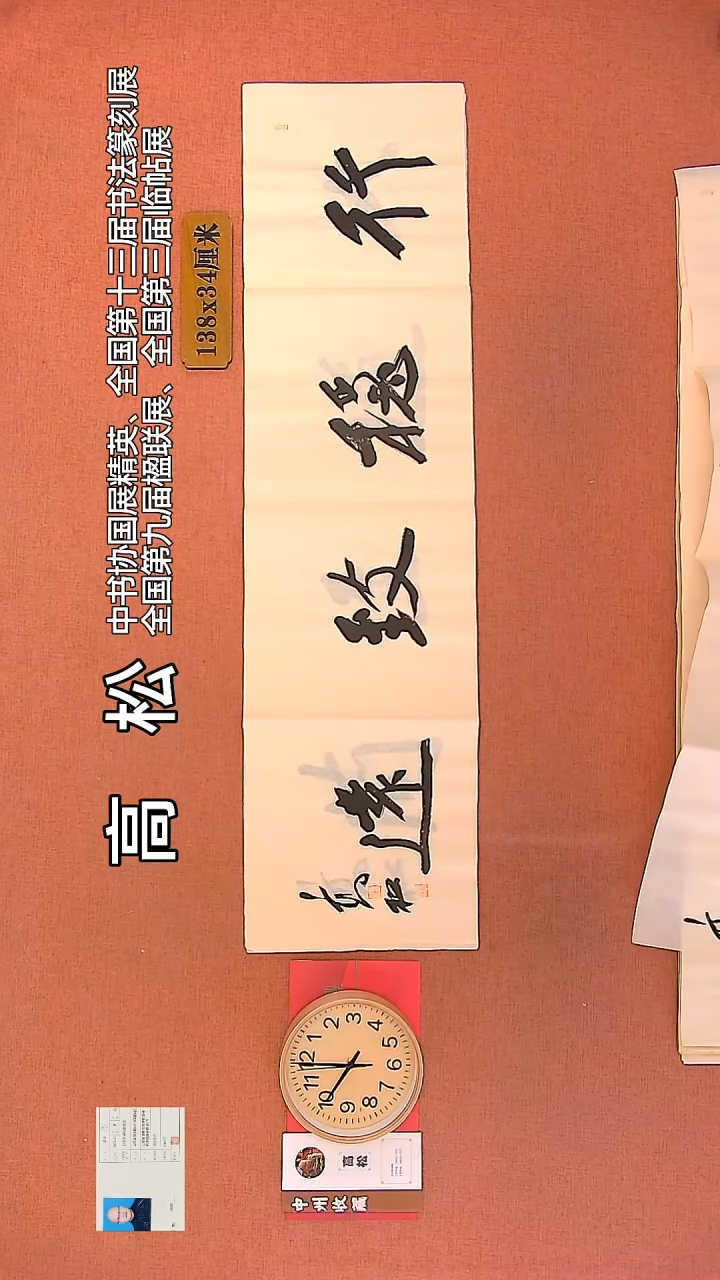 高 松
中书协国展精英、全国第十三届书法篆刻展
全国第九届楹联展、全国第三届临帖展
138x34厘米
行穩致遠
高松
12
1
2
3
4
5
6
7
8
9
10
11
高松
中州收藏